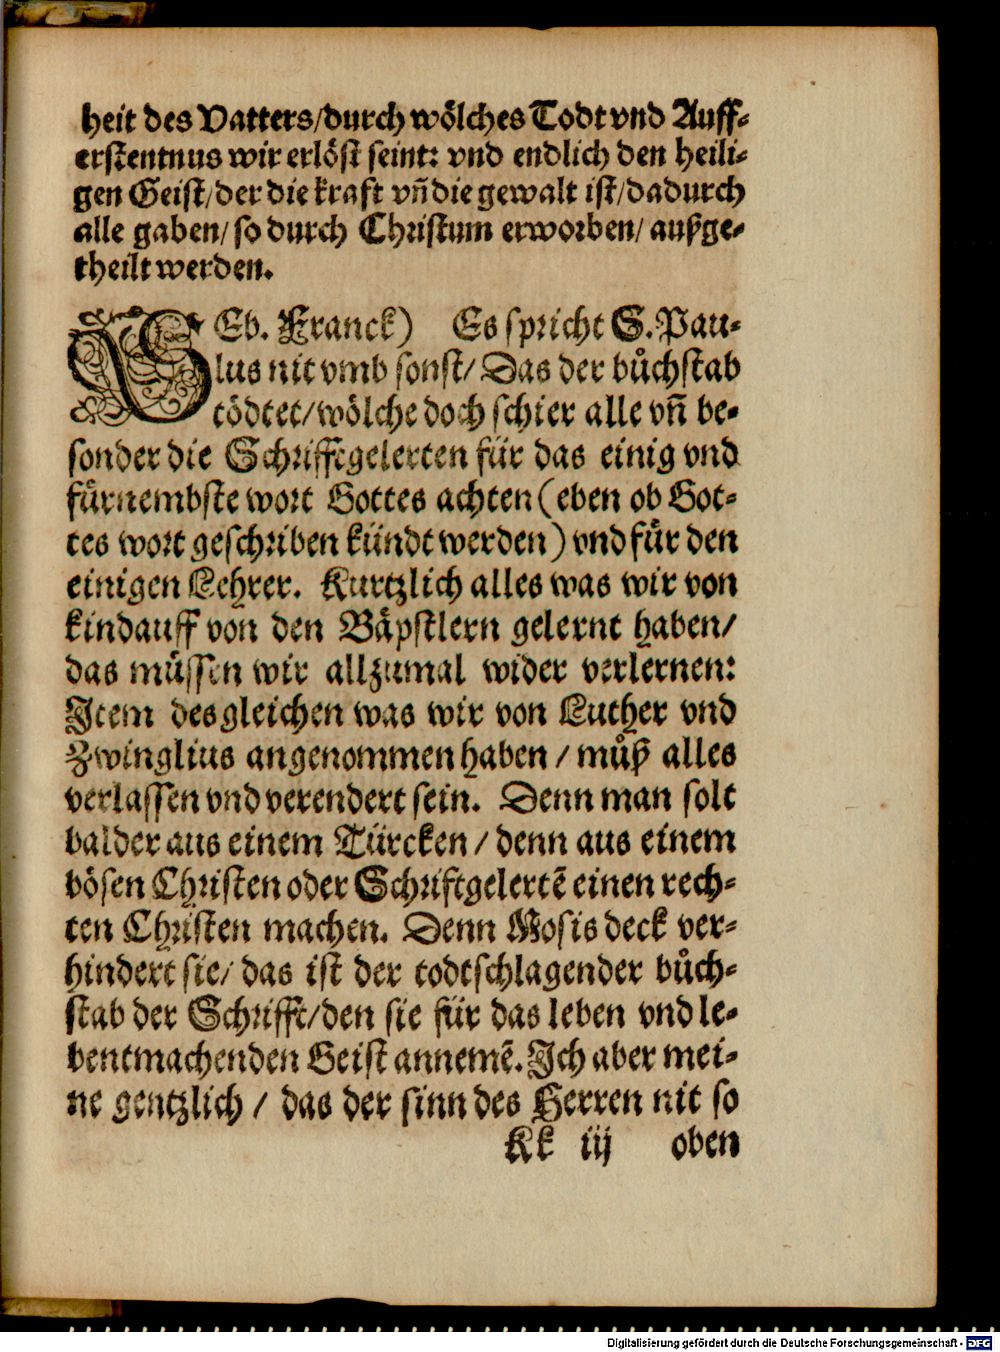 heit des Vatters/durch wölches Todt vnd Auff-
erstentnus wir erlöst seint: vnd endlich den heili-
gen Geist/der die kraft vñ die gewalt ist/dadurch
alle gaben/ so durch Christum erworben/ außge-
theilt werden.
SEb. Franck) Es spricht S. Pau-
lus nit vmb sonst/ Das der bůchstab
tödtet/wölche doch schier alle vñ be-
sonder die Schrifftgelerten für das einig vnd
fürnembste wort Gottes achten (eben ob Got-
tes wort geschriben kündt werden) vnd für den
einigen Lehrer. Kurtzlich alles was wir von
kindauff von den Bäpstlern gelernt haben/
das müssen wir allzumal wider verlernen:
Item desgleichen was wir von Luther vnd
Zwinglius angenommen haben / můß alles
verlassen vnd verendert sein. Denn man solt
balder aus einem Türcken / denn aus einem
bösen Christen oder Schriftgelertẽ einen rech-
ten Christen machen. Denn Mosis deck ver-
hindert sie/ das ist der todtschlagender bůch-
stab der Schrifft/den sie für das leben vnd le-
bentmachenden Geist annemẽ. Ich aber mei-
ne gentzlich / das der sinn des Herren nit so
Kk iij oben
Digitalisierung gefördert durch die Deutsche Forschungsgemeinschaft - DFG